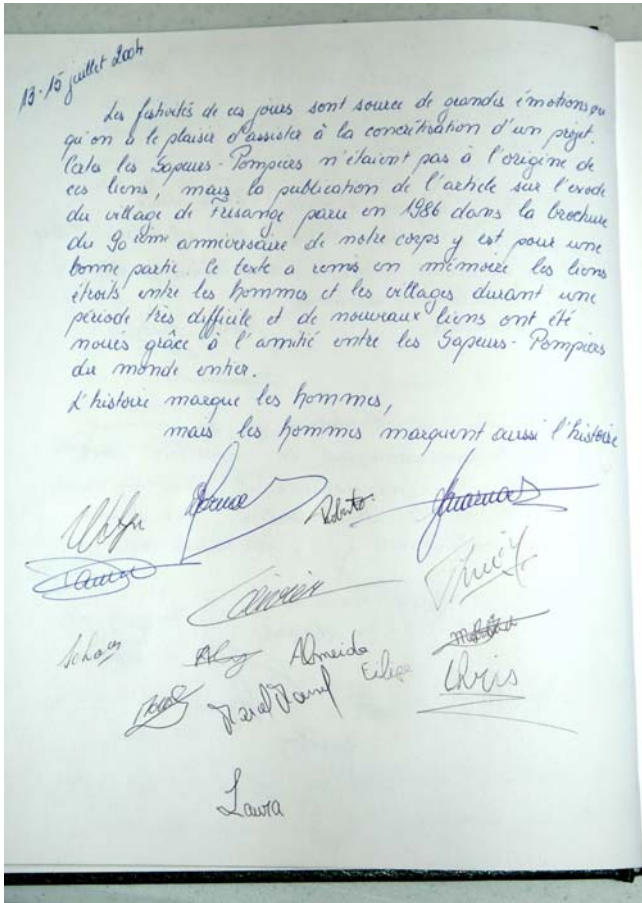 13-15 juillet 2004
Les festivités de ces jours sont source de grandes émotions
qu'on a le plaisir d'assister à la concrétisation d'un projet.
Certes les Sapeurs-Pompiers n'étaient pas à l'origine de
ces liens, mais la publication de l'article sur l'exode
du village de Frisange paru en 1986 dans la brochure
du 90ième anniversaire de notre corps y est pour une
bonne partie. Ce texte a remis en mémoire les liens
étroits entre les hommes et les villages durant une
période très difficile et de nouveaux liens ont été
noués grâce à l'amitié entre les Sapeurs-Pompiers
du monde entier.
L'histoire marque les hommes,
mais les hommes marquent aussi l'histoire
Roberto
Almeida
Chris
Laura